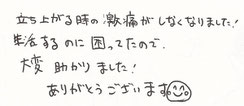 立ち上がる時の激痛がしなくなりました!
生活するのに困ってたので、
大変助かりました!
ありがとうございます